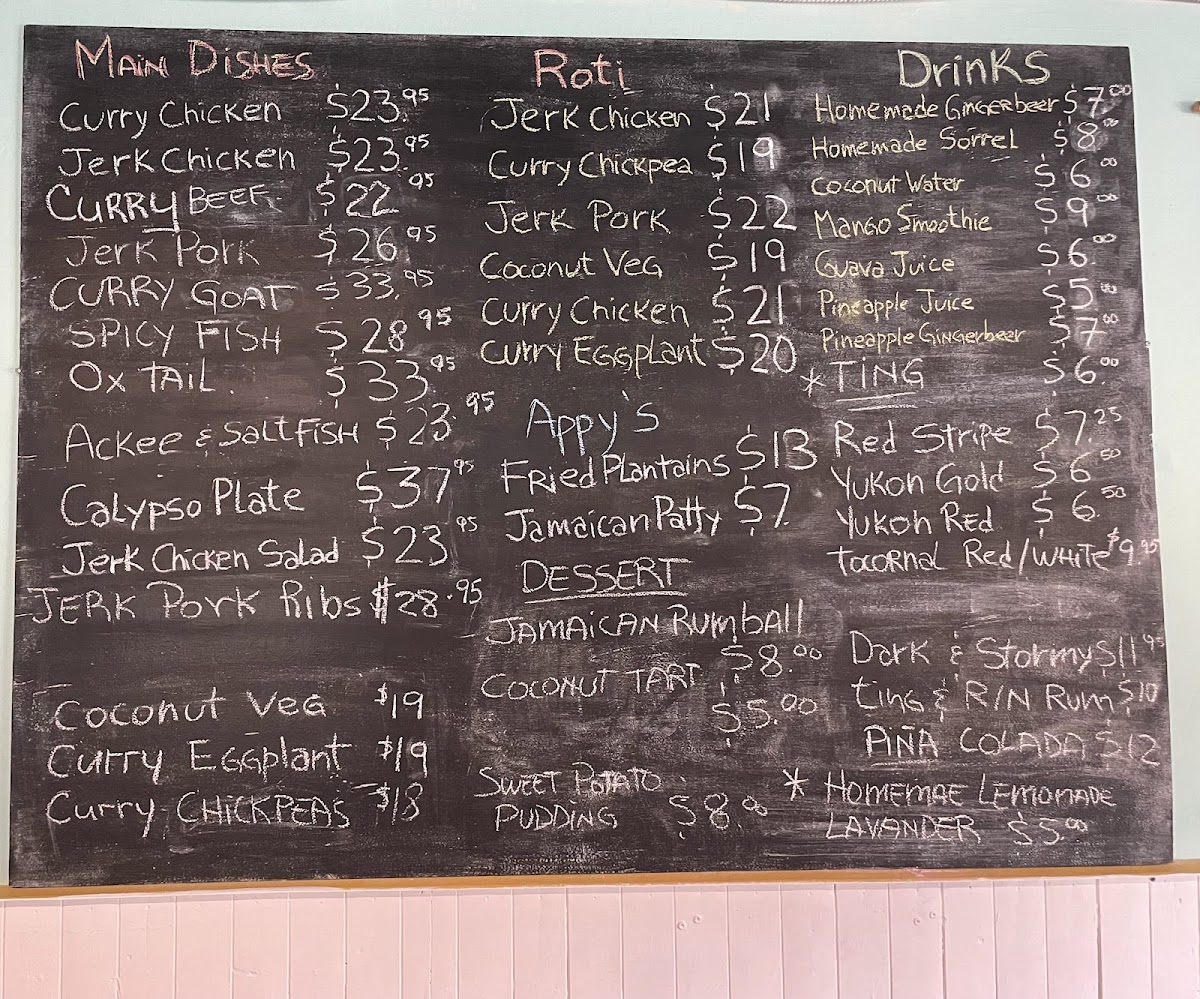 Main Dishes
Curry Chicken $23.95
Jerk Chicken $23.95
CURRY BEEF $22.95
Jerk Pork $26.95
CURRY GOAT $33.95
SPICY FISH $28.95
Ox TAIL $33.95
Ackee & SALTFISH $23.95
Calypso Plate $37.95
Jerk Chicken Salad $23.95
JERK Pork Ribs $28.95
Coconut Veg $19
Curry Eggplant $19
Curry CHICKPEAS $18
Roti
Jerk Chicken $21
Curry Chickpea $19
Jerk Pork $22
Coconut Veg $19
Curry Chicken $21
Curry Eggplant $20
Appy's
Fried Plantains $13
Jamaican Patty $7
DESSERT
JAMAICAN RUMBAll
$8.00
COCONUT TART
$5.00
SWEET POTATO
PUDDING $8.00
DrinKS
Homemade Gingerbeer $7.00
Homemade Sorrel $8.00
Coconut Water $6.00
Mango Smoothie $9.00
Guava Juice $6.00
Pineapple Juice $5.00
Pineapple Gingerbeer $7.00
* TING $6.00
Red Stripe $7.25
Yukon Gold $6.50
Yukon Red $6.50
Tocornal Red/WHITE $9.95
Dark & Stormy $11.95
Ting & R/N Rum $10
PIÑA COLADA $12
* HOMEMAE LEMOMADE
LAVANDER $5.00